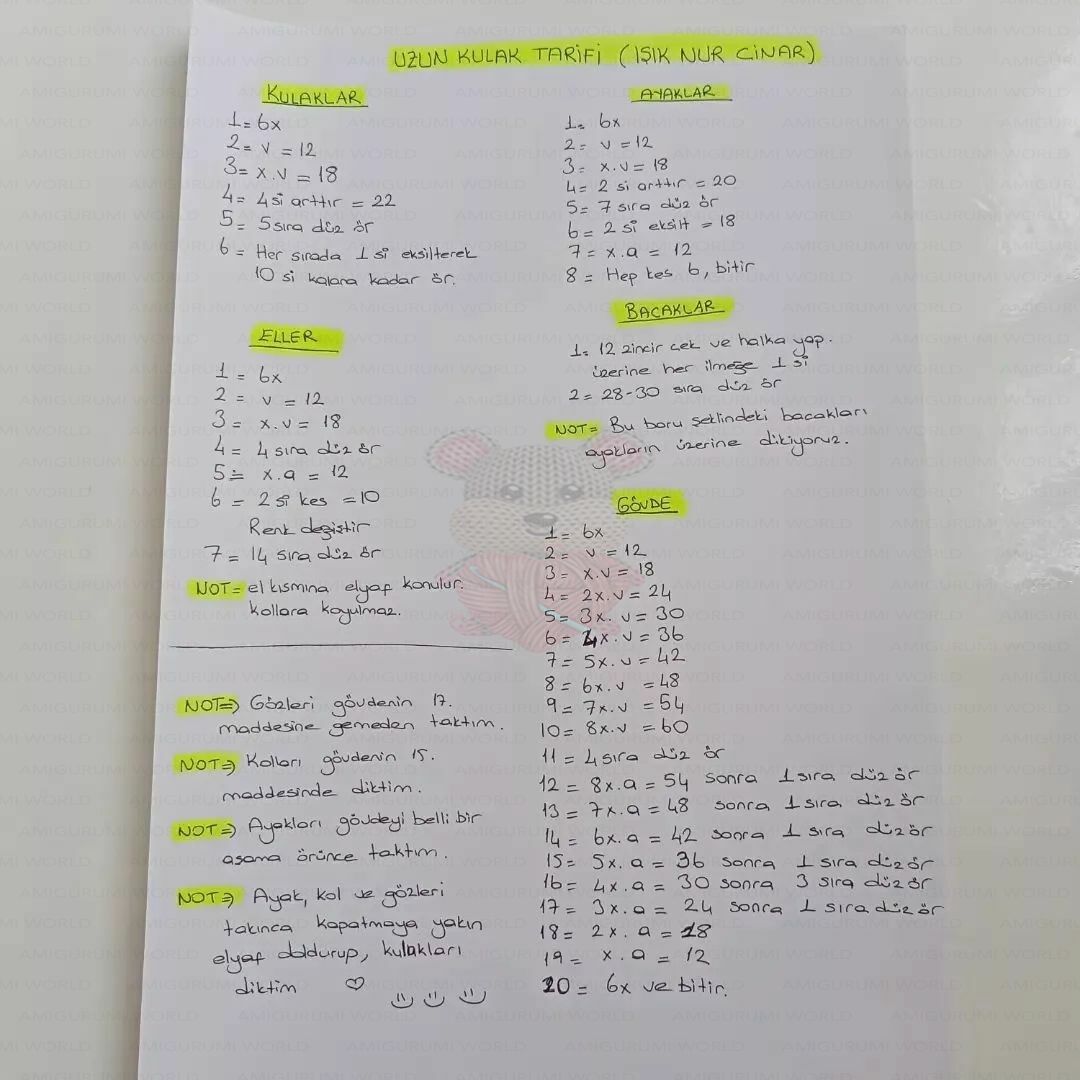 UZUN KULAK TARİFİ (IŞIK NUR CİNAR)
KULAKLAR
1= 6x
2= v = 12
3= x.v = 18
4= 4 si arttır = 22
5= 5 sıra düz ör
6= Her sırada 1 si eksilterek
10 si kalana kadar ör.
ELLER
1 = 6x
2 = v = 12
3 = x.v = 18
4 = 4 sıra düz ör
5 = x.a = 12
6 = 2 si kes = 10
Renk değiştir
7 = 14 sıra düz ör
NOT= el kısmına elyaf konulur.
kollara koyulmaz.
NOT=) Gözleri gövdenin 17.
maddesine gemeden taktım.
NOT=) Kolları gövdenin 15.
maddesinde diktim.
NOT=) Ayakları gövdeyi belli bir
aşama örünce taktım.
NOT=) Ayak, kol ve gözleri
takınca kapatmaya yakın
elyaf doldurup, kulakları
diktim
AYAKLAR
1= 6x
2= v = 12
3= x.v = 18
4= 2 si arttır = 20
5= 7 sıra düz ör
6= 2 si eksilt = 18
7= x.a = 12
8= Hep kes 6, bitir
BACAKLAR
1= 12 zincir cek ve halka yap.
üzerine her ilmeğe 1 si
2= 28-30 sıra düz ör
NOT= Bu boru şeklindeki bacakları
ayakların üzerine dikiyoruz.
GÖVDE
1= 6x
2= v = 12
3= x.v = 18
4= 2x.v = 24
5= 3x.v = 30
6= 4x.v = 36
7= 5x.v = 42
8= 6x.v = 48
9= 7x.v = 54
10= 8x.v = 60
11= 4 sıra düz ör
12= 8x.a = 54 sonra 1 sıra düz ör
13= 7x.a = 48 sonra 1 sıra düz ör
14= 6x.a = 42 sonra 1 sıra düz ör
15= 5x.a = 36 sonra 1 sıra düz ör
16= 4x.a = 30 sonra 3 sıra düz ör
17= 3x.a = 24 sonra 1 sıra düz ör
18= 2x.a = 18
19= x.a = 12
20= 6x ve bitir.
AMIGURUMI WORLD